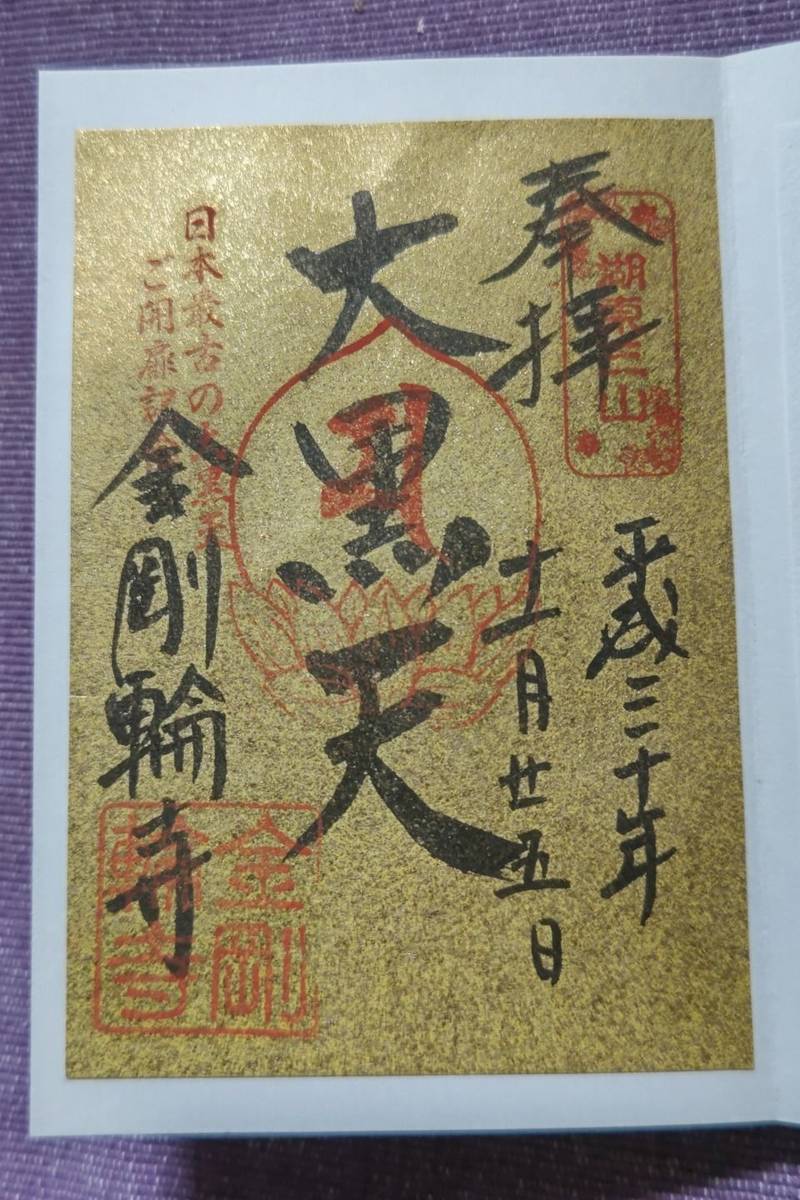 奉拝
湖東三山
平成三十年
十一月廿五日
大黒天
日本最古の大黒天
ご開扉記念
金剛輪寺
金剛輪寺